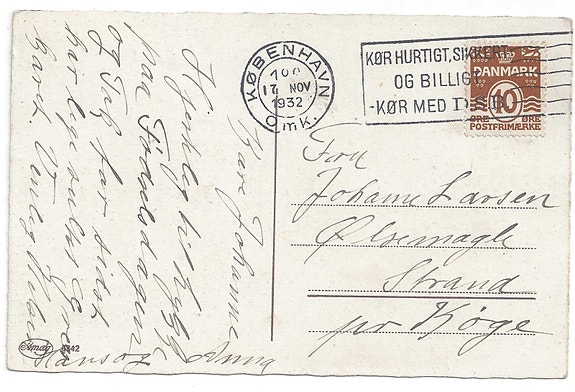 Kære Johanne
Hjertelig til Lykke
paa Fødselsdagen
og Tak for sidst
har lige sendt en
Kort. Venlig Hilsen
Hans og Anna
Amag 0342
KØBENHAVN
17 NOV
1932
OmK.
KØR HURTIGT, SIKKERT
OG BILLIGT
-KØR MED DSB
DANMARK
10
ØRE ØRE
POSTFRIMÆRKE
Fru
Johanne Larsen
Ølsemagle
Strand
pr Køge